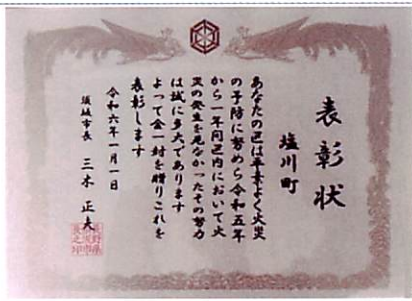 表彰状
塩川町
あなたの区は平素よく火災
の予防に努めら令和五年
から一年间区内において火
災の発生を見なかったその努力
は誠に多大であります
よって金一封を贈りこれを
表彰します
令和六年一月一日
須坂市長 三木 正夫
長野県
須坂市
長之印